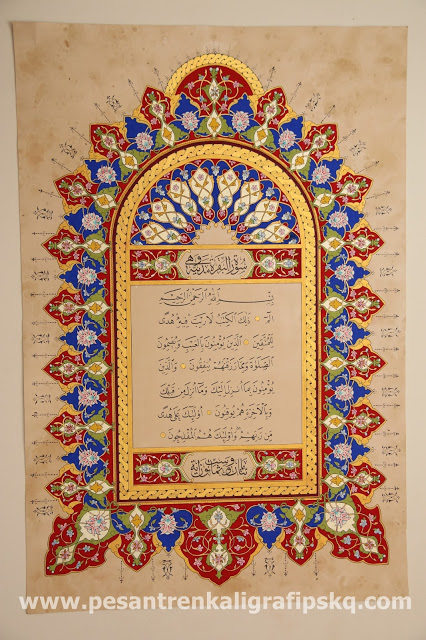 سورة البقرة مدنية وهي
بسم الله الرحمن الرحيم
الٓمٓ ذلك الكتب لا ريب فيه هدى
للمتقين الذين يؤمنون بالغيب ويقيمون
الصلوة ومما رزقنهم ينفقون والذين
يؤمنون بما أنزل إليك وما أنزل من قبلك
وبالآخرة هم يوقنون أولئك على هدى
من ربهم وأولئك هم المفلحون
مائتان وست وثمانون آية
www.pesantrenkaligrafipskq.com